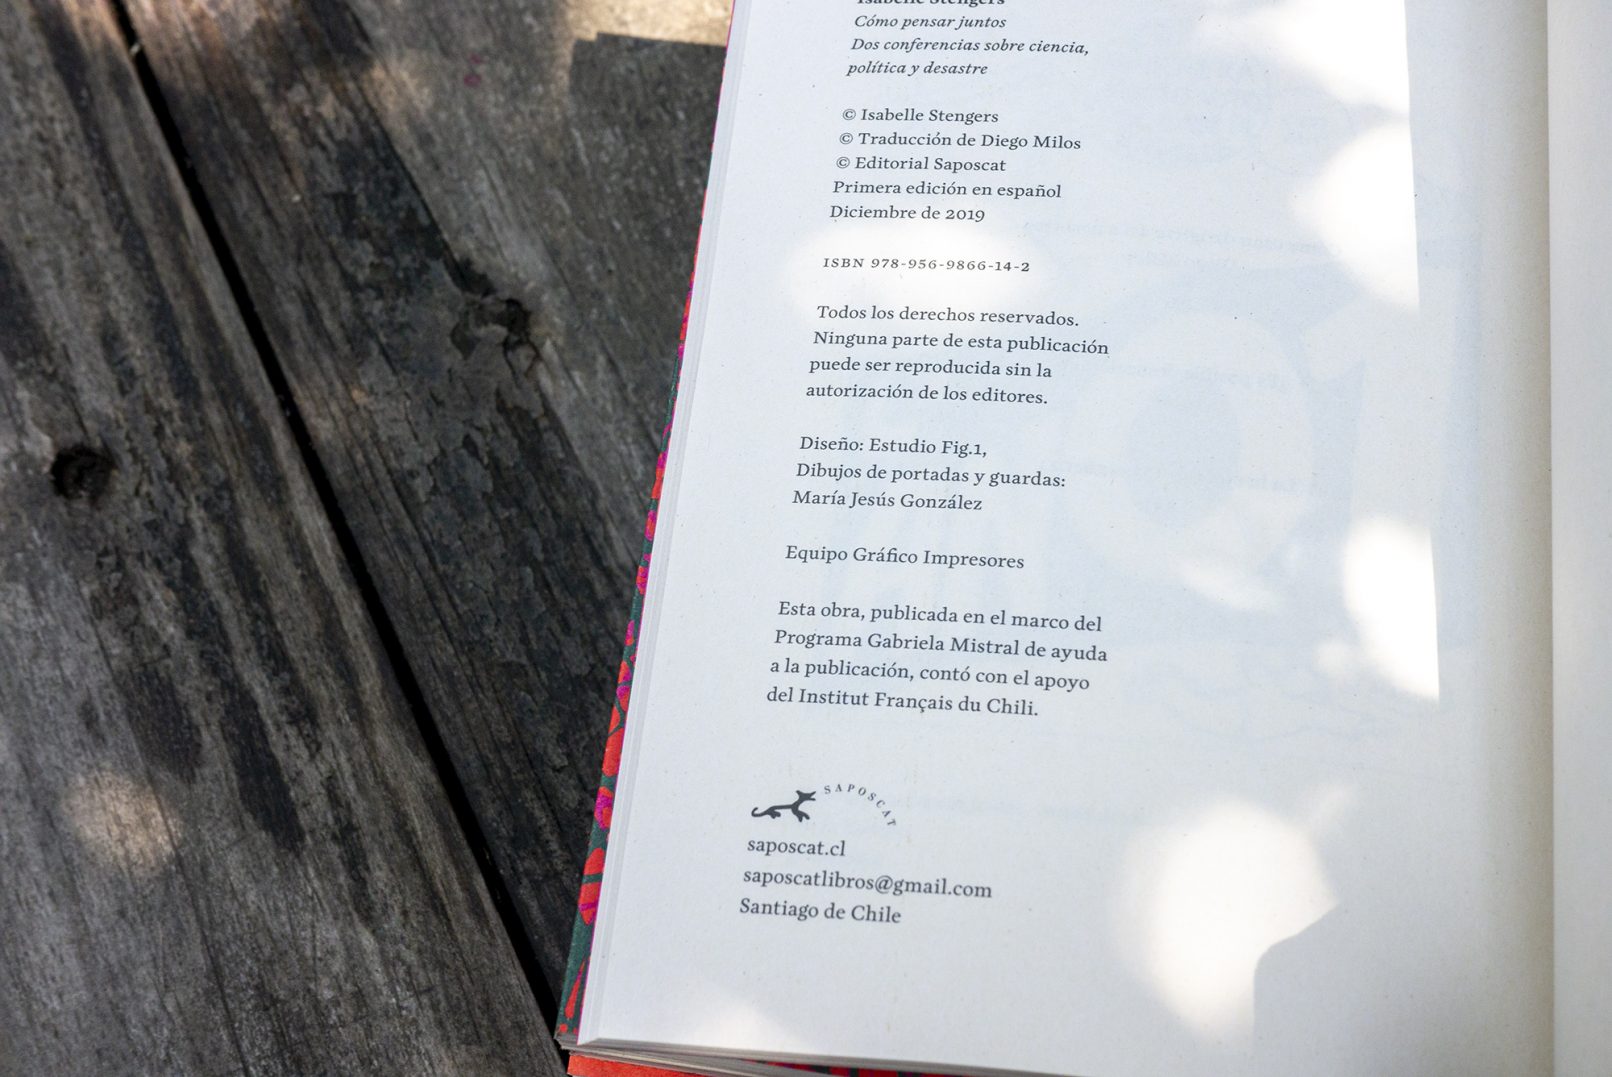 Isabelle Stengers
Cómo pensar juntos
Dos conferencias sobre ciencia,
política y desastre
© Isabelle Stengers
© Traducción de Diego Milos
© Editorial Saposcat
Primera edición en español
Diciembre de 2019
ISBN 978-956-9866-14-2
Todos los derechos reservados.
Ninguna parte de esta publicación
puede ser reproducida sin la
autorización de los editores.
Diseño: Estudio Fig.1,
Dibujos de portadas y guardas:
María Jesús González
Equipo Gráfico Impresores
Esta obra, publicada en el marco del
Programa Gabriela Mistral de ayuda
a la publicación, contó con el apoyo
del Institut Français du Chili.
SAPOSCAT
saposcat.cl
saposcatlibros@gmail.com
Santiago de Chile